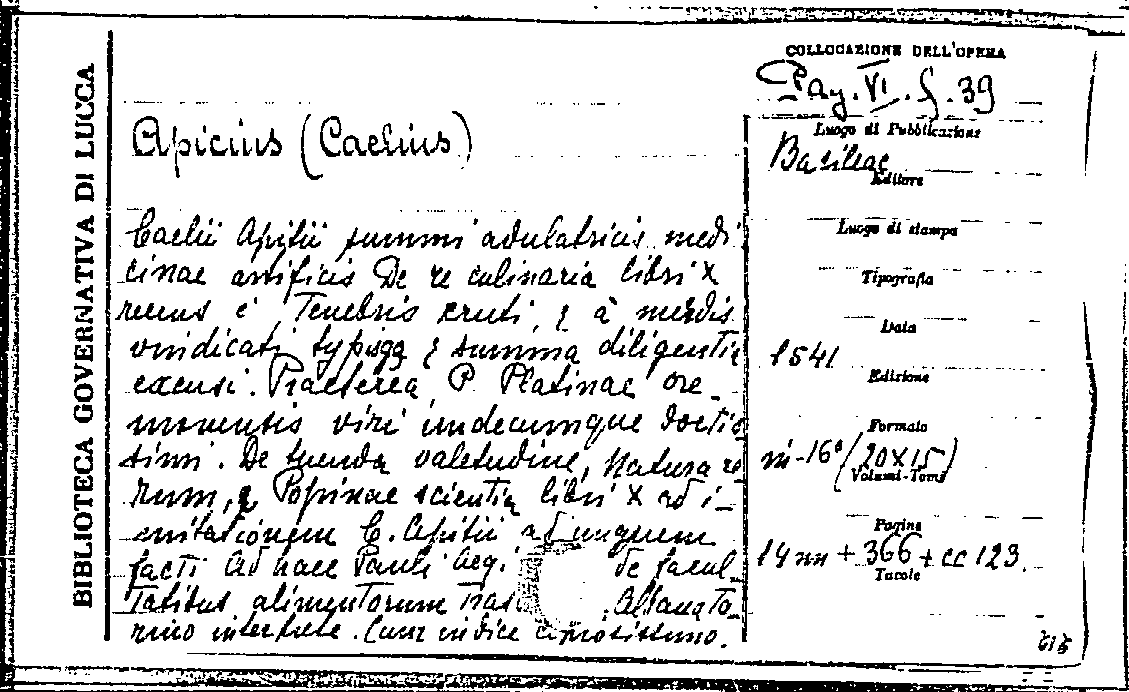 BIBLIOTECA GOVERNATIVA DI LUCCA
COLLOCAZIONE DELL'OPERA
Pag. VI. f. 39
Apicius (Caelius)
Luogo di Pubblicazione
Basileae
Editore
Luogo di stampa
Tipografia
Data
1541
Edizione
Formato
in-16° (20x15)
Volumi-Tomi
Pagine
14 nn + 366 + cc 123.
Tavole
Caelii Apitii summi adulatricis medi
cinae artificis De re culinaria libri X
recens è Tenebris eruti, & à mendis
vindicati, typisqq & summa diligentia
excusi. Praeterea, P. Platinae cre_
monensis viri undecumque doctis
simi. De tuenda valetudine, Natura re
rum, & Popinae scientia libri X ad i_
mitationem C. Apitii ad unguem
facti Ad haec Pauli Aeg. de facul_
tatibus alimentorum Trac Albano To_
rino interprete. Cum indice copiosissimo.